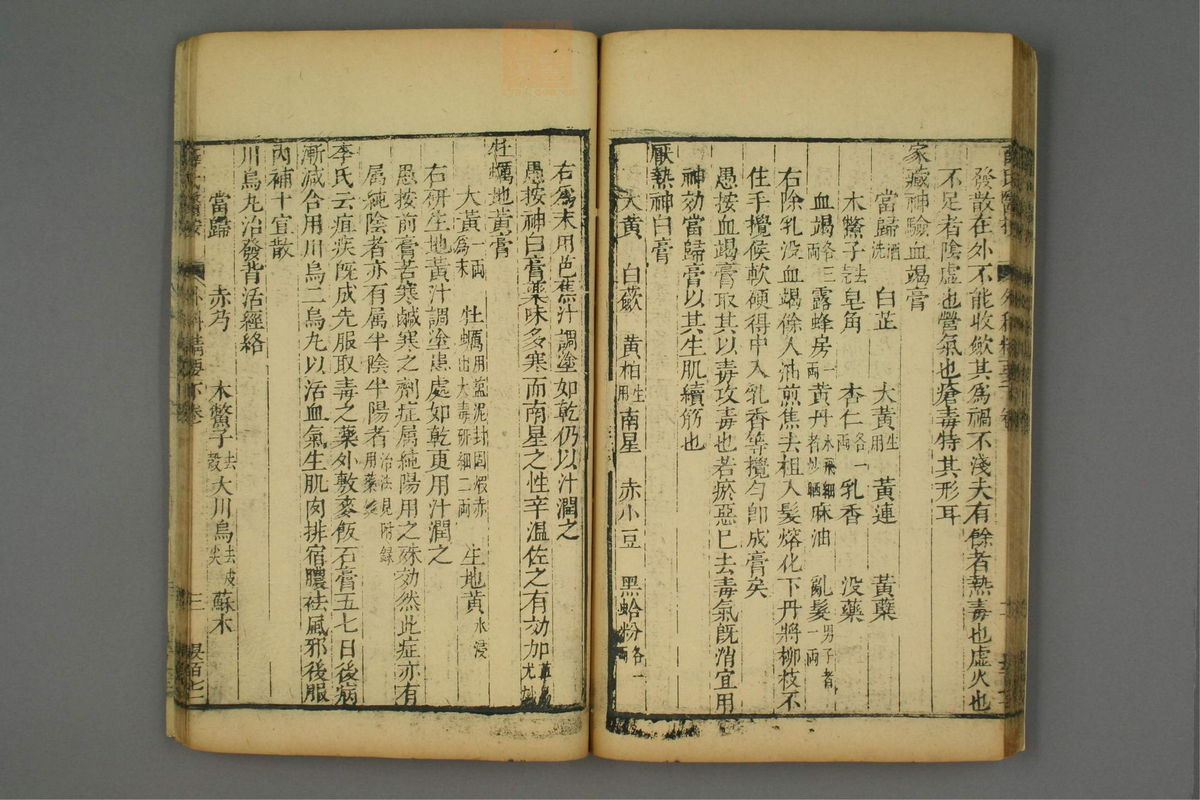 發散在外不能收斂其為禍不淺夫有餘者熱毒也虛火也
不足者陰虛也營氣也瘡毒特其形耳
家藏神驗血竭膏
當歸酒洗 白芷 大黃生用 黃連 黃蘗
木鱉子去殼 皂角 杏仁各一兩 乳香 没藥
血竭各三兩 露蜂房一兩 黃丹水飛細者炒晒 麻油 亂髮男子者一兩
右除乳没血竭餘入油煎焦去柤入髮熔化下丹將柳枝不
住手攪候軟硬得中入乳香等攪勻卽成膏矣
愚按血竭膏取其以毒攻毒也若瘀惡巳去毒氣旣消宜用
神効當歸膏以其生肌續筋也
厭熱神白膏
大黃 白蘞 黃柏生用 南星 赤小豆 黑蛤粉各一兩
右爲末用芭蕉汁調塗如乾仍以汁潤之
愚按神白膏藥味多寒而南星之性辛溫佐之有効加草烏尤妙
牡蠣地黃膏
大黃一兩爲末 牡蠣用鹽泥封固煅赤出火毒研細二兩 生地黃水浸
右研生地黃汁調塗患處如乾更用汁潤之
愚按前膏苦寒鹹寒之劑症属純陽用之殊効然此症亦有
属純陰者亦有属半陰半陽者治法見附録用藥
李氏云疽疾旣成先服取毒之藥外敷麥飯石膏五七日後病
漸減合用川烏二烏丸以活血氣生肌肉排宿膿祛風邪後服
內補十宜散
川烏丸治發背活經絡
當歸 赤芍 木鱉子去殼 大川烏去皮尖 蘇木
外科精要下卷
三